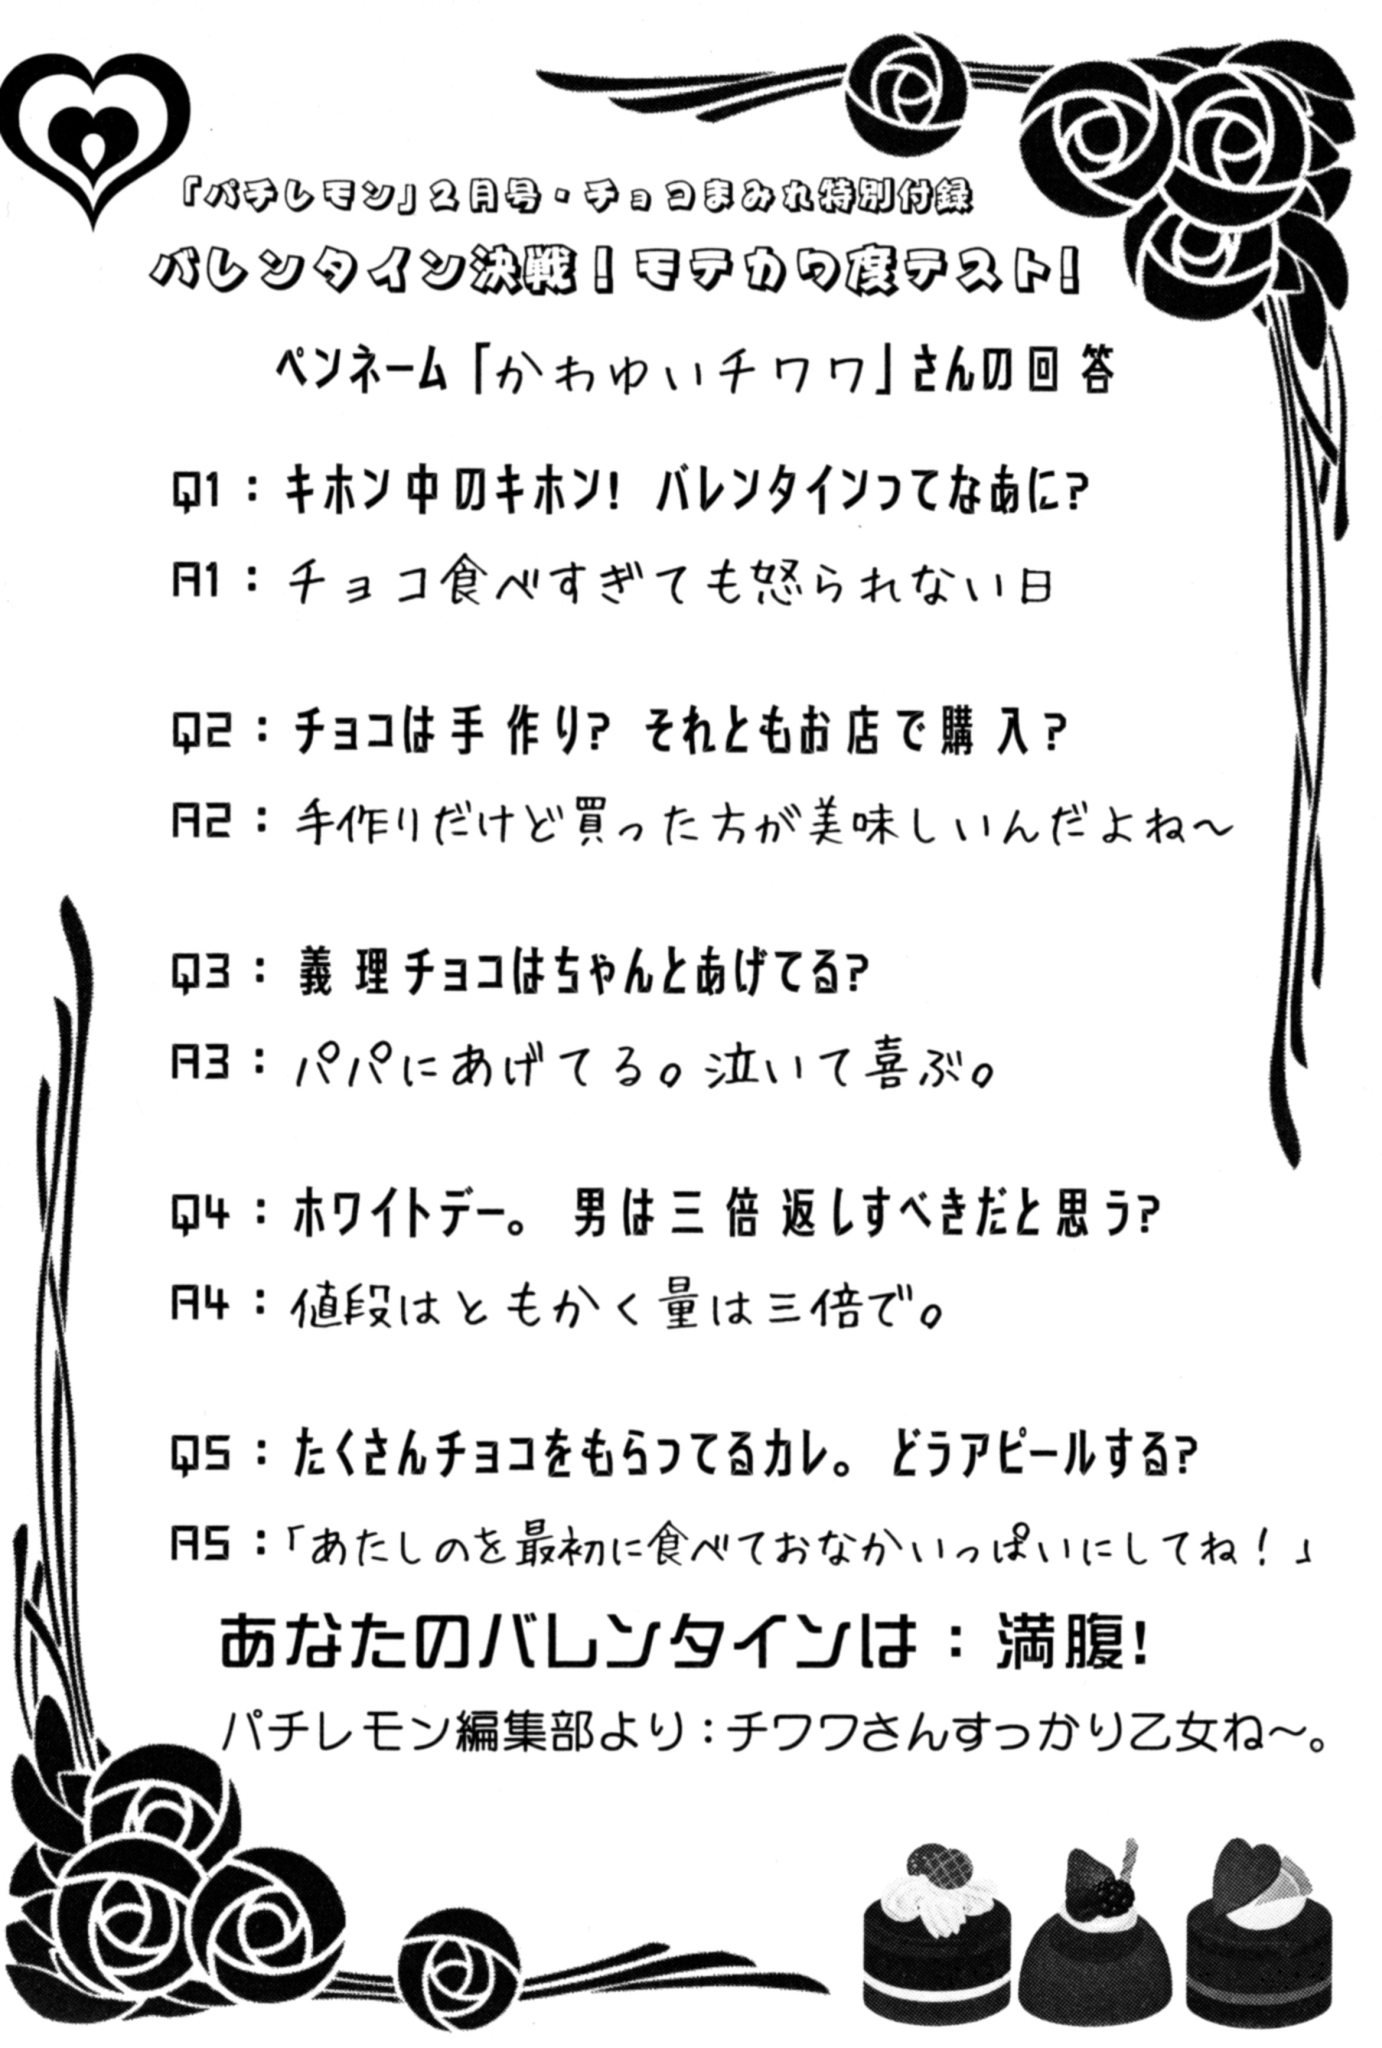 「パチレモン」２月号・チョコまみれ特別付録
バレンタイン決戦！モテカワ度テスト！
ペンネーム「かわゆいチワワ」さんの回答
Q1：キホン中のキホン！ バレンタインってなあに？
A1：チョコ食べすぎても怒られない日
Q2：チョコは手作り？ それともお店で購入？
A2：手作りだけど買った方が美味しいんだよね～
Q3：義理チョコはちゃんとあげてる？
A3：パパにあげてる。泣いて喜ぶ。
Q4：ホワイトデー。 男は三倍返しすべきだと思う？
A4：値段はともかく量は三倍で。
Q5：たくさんチョコをもらってるカレ。 どうアピールする？
A5：「あたしのを最初に食べておなかいっぱいにしてね！」
あなたのバレンタインは：満腹！
パチレモン編集部より：チワワさんすっかり乙女ね～。